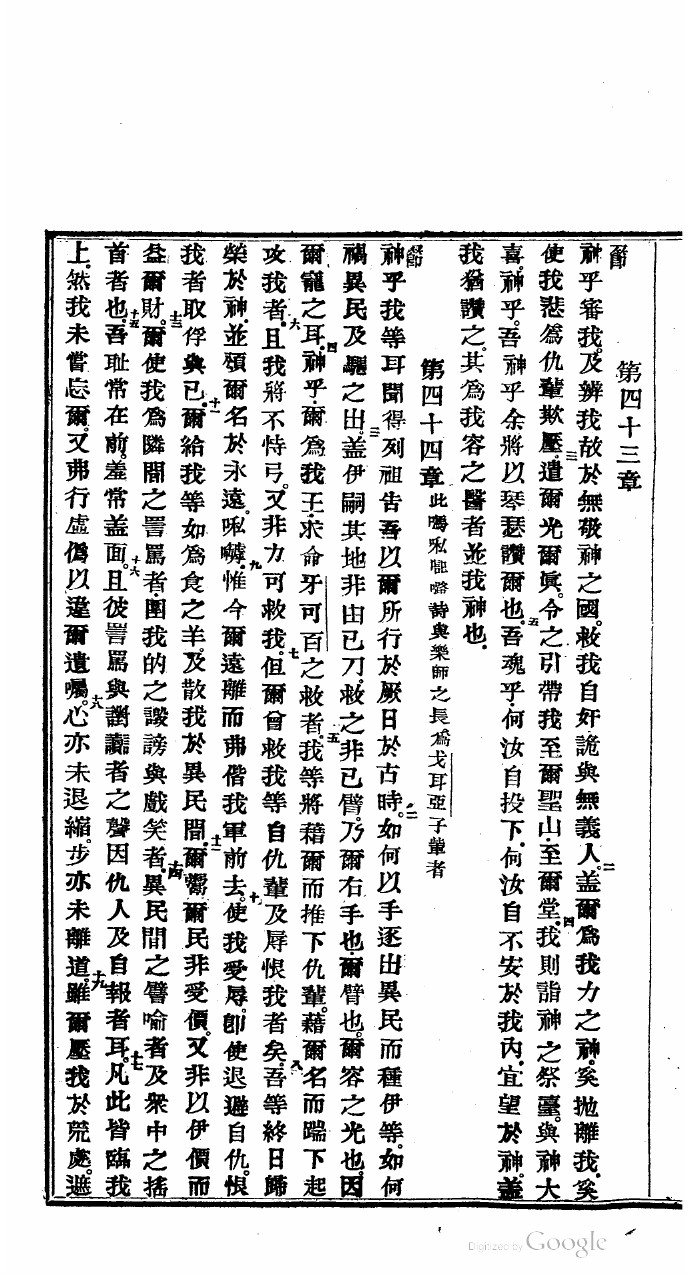 第四十三章
一節 神乎審我。及辨我故於無敬神之國。救我自奸詭與無義人。二盖爾爲我力之神。奚拋離我。奚
使我悲爲仇輩欺壓。三遣爾光爾眞。令之引帶我至爾聖山。至爾堂。四我則詣神之祭臺。與神大
喜。神乎。吾神乎余將以琴瑟讚爾也。五吾魂乎。何汝自投下。何汝自不安於我內。宜望於神。盖
我猶讚之。其爲我容之醫者並我神也。
第四十四章 此 詩與樂師之長爲戈耳亞子輩者
一節 神乎我等耳聞得列祖告吾以爾所行於厥日於古時。二如何以手逐出異民而種伊等。如何
禍異民及驅之出。三盖伊嗣其地非由已刀。救之非已臂。乃爾右手也。爾臂也。爾容之光也。因
爾寵之耳。四神乎。爾爲我王。求命牙可百之救者。五我等將藉爾而推下仇輩。藉爾名而踹下起
攻我者。六且我將不恃弓。又非力可救我。七但爾曾救我等自仇輩及辱恨我者矣。八吾等終日歸
榮於神。並頌爾名於永遠。㖿嘑。九惟今爾遠離而弗偕我軍前去。使我受辱。十卽使退遯自仇。恨
我者取俘與已。十一爾給我等如爲食之羊。及散我於異民間。十二爾鬻爾民非受價。又非以伊價而
益爾財。十三爾使我爲隣間之詈罵者。圍我的之譭謗與戲笑者。十四異民間之譬喻者及衆中之搖
首者也。十五吾耻常在前。羞常盖面。十六且彼詈罵與讟者之聲因仇人及自報者耳。十七凡此皆臨我
上。然我未嘗忘爾。又弗行虛僞以違爾遺囑。十八心亦未退縮。步亦未離道。十九雖爾壓我於荒處。遮
Digitized by Google